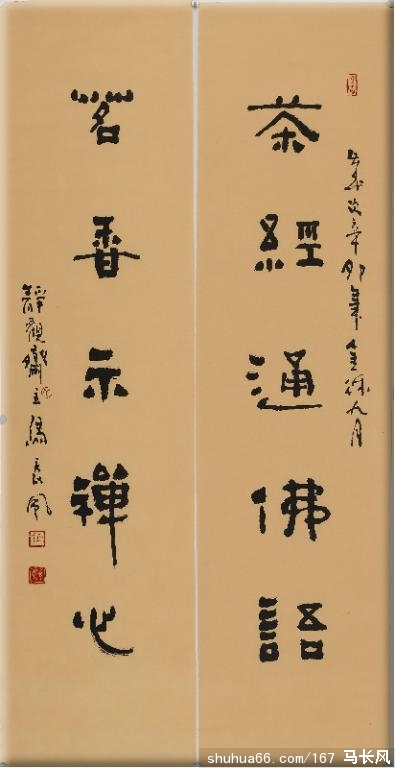 次辛卯年金秋九月
茶經通佛語
茗香示禪心
靜觀齋主馬長風
shuhua66.com/167 马长风